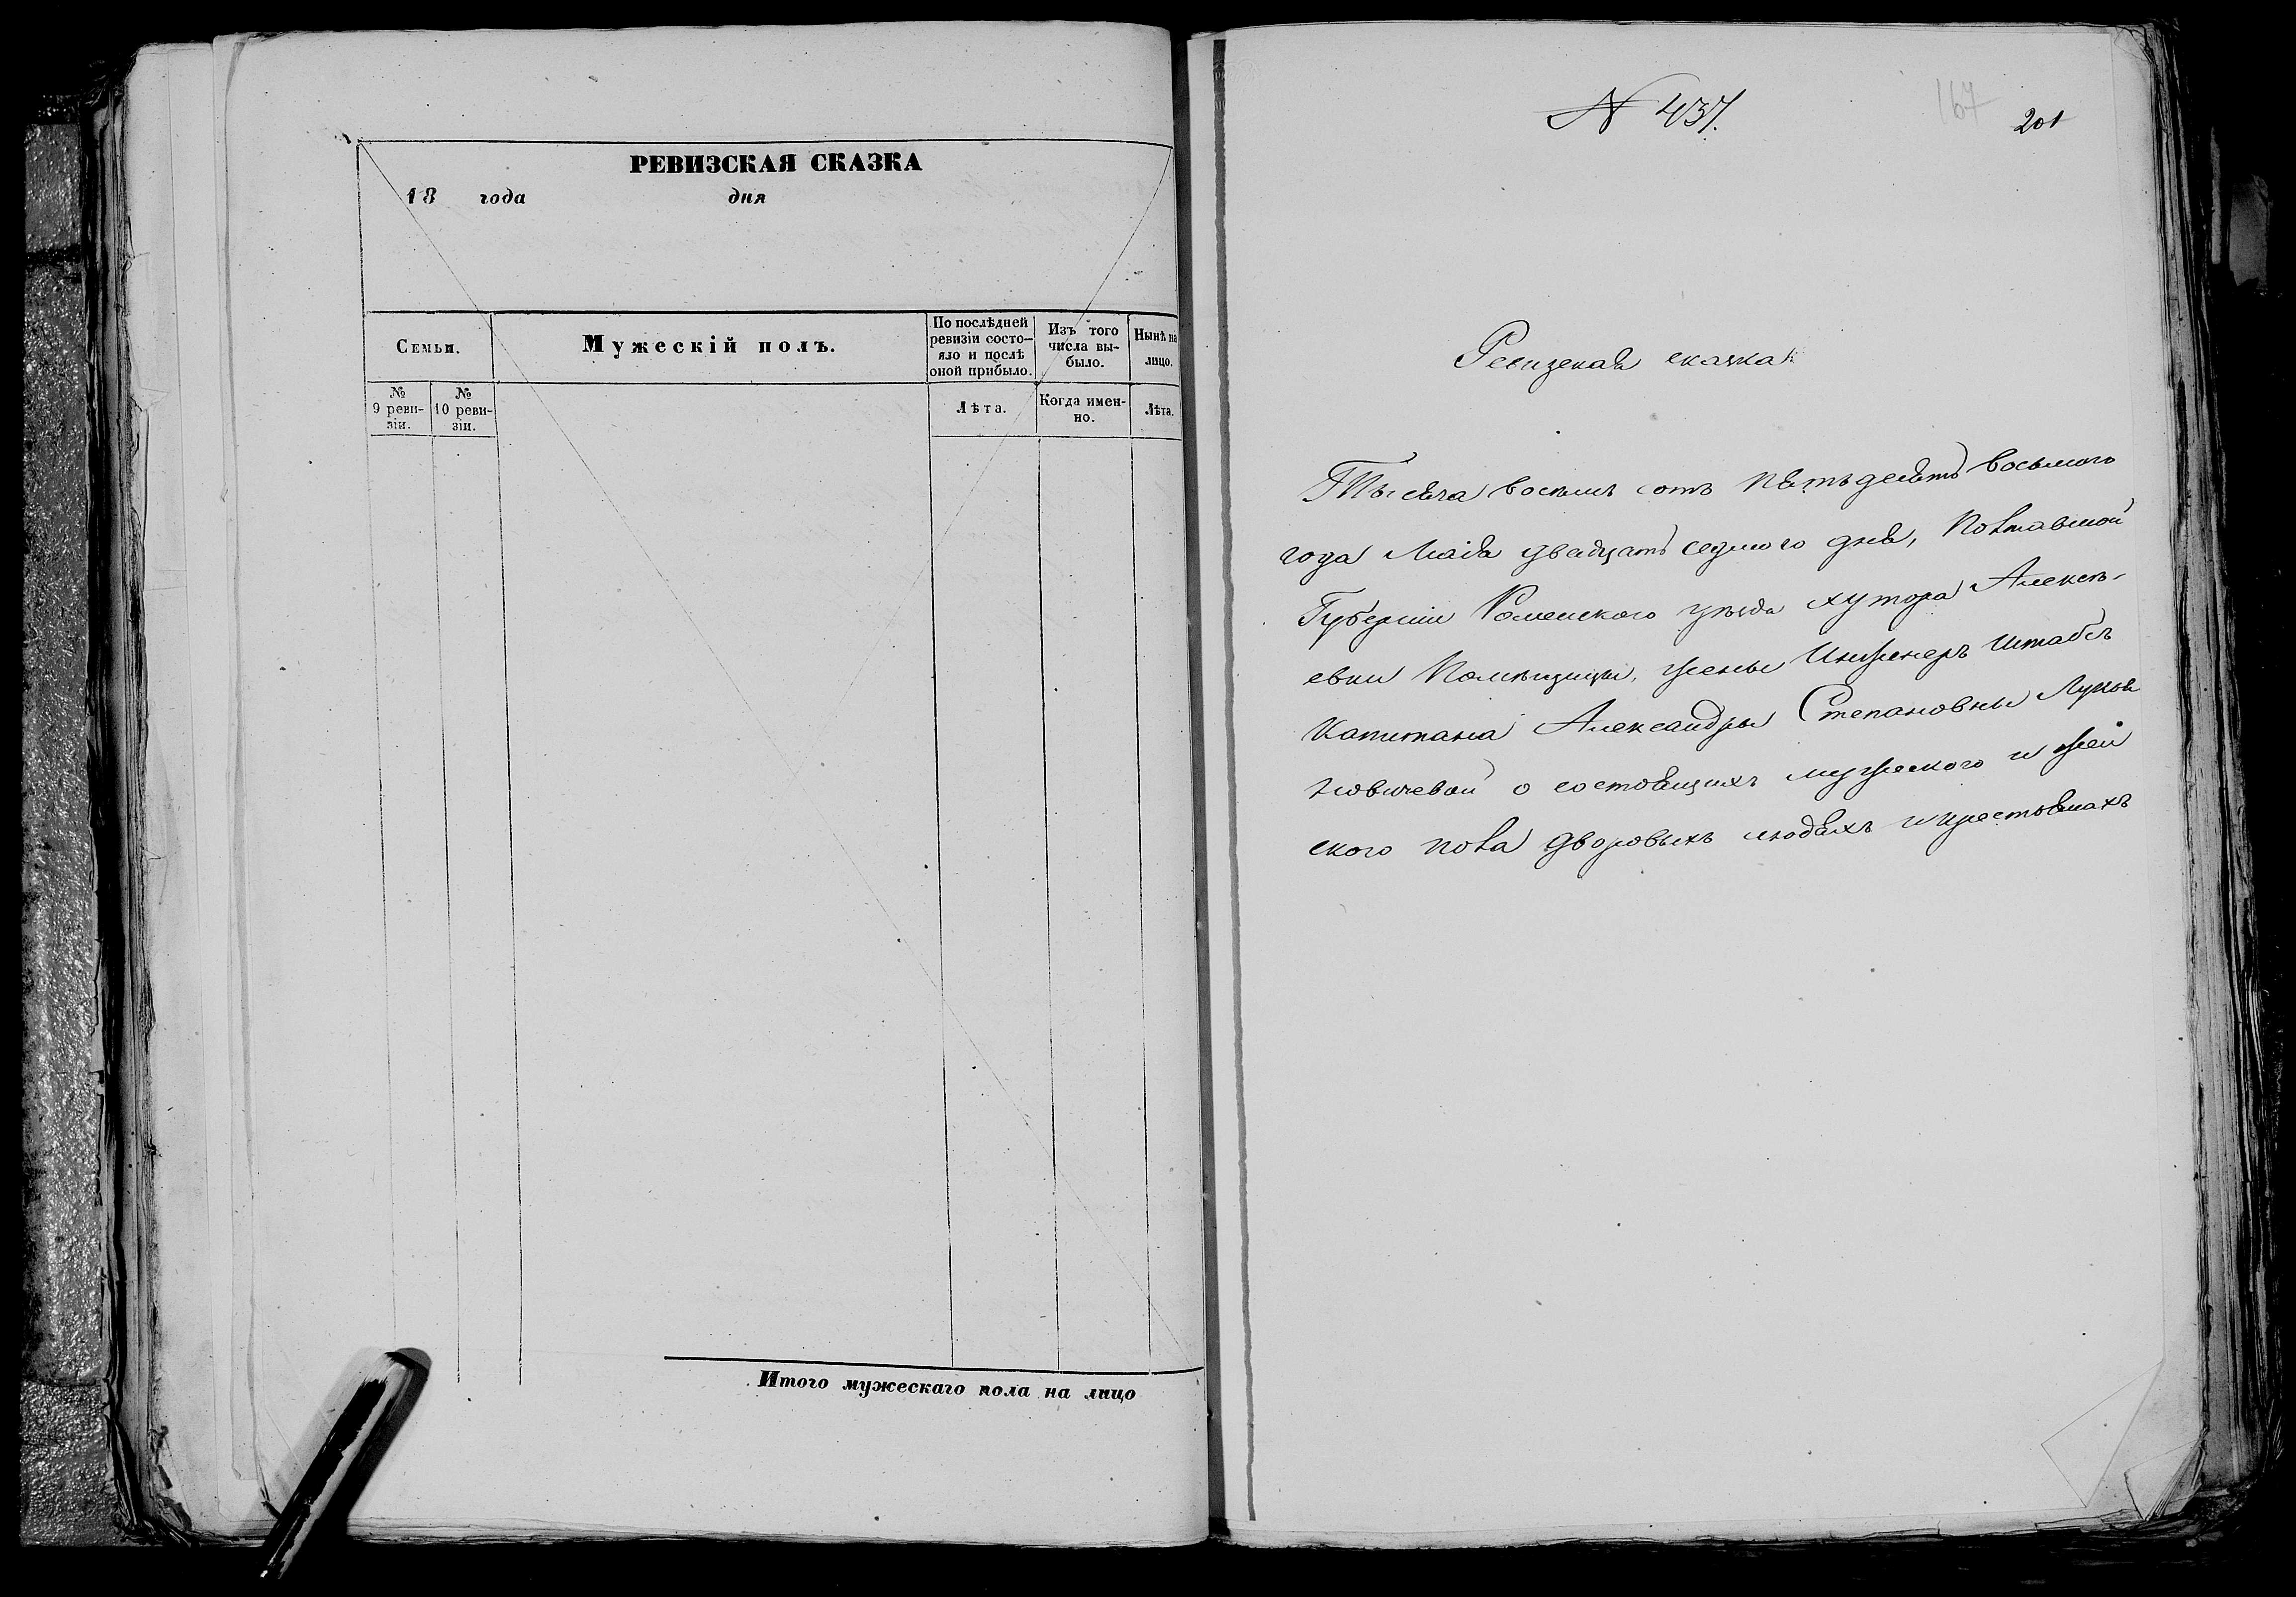 РЕВИЗСКАЯ СКАЗКА
18 года дня
Семьи.
Мужескій полъ.
По послѣдней
ревизіи состо-
яло и послѣ
оной прибыло.
Изъ того
числа вы-
было.
Нынѣ на
лицо.
№
9 реви-
зіи.
№
10 реви-
зіи.
Лѣта.
Когда имен-
но.
Лѣта.
Итого мужескаго пола на лицо
N 437.
167
201
Ревизская сказка
Тысяча восемь сотъ пятьдесятъ восьмого
года Маія двадцать седмого дня, Полтавской
Губерніи Роменского уѣзда хутора Алексѣ-
евки Помѣщицы, жены Инженеръ Штабсъ
Капитана Александры Степановны Лукья
новичевой о состоящихъ мужеского и жен
ского пола дворовыхъ людяхъ и крестьянахъ